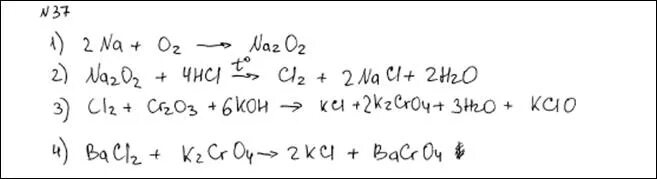 N37
1) 2Na + O2 → Na2O2
2) Na2O2 + 4HCl t°→ Cl2 + 2NaCl + 2H2O
3) Cl2 + Cr2O3 + 6KOH → KCl + 2K2CrO4 + 3H2O + KClO
4) BaCl2 + K2CrO4 → 2KCl + BaCrO4